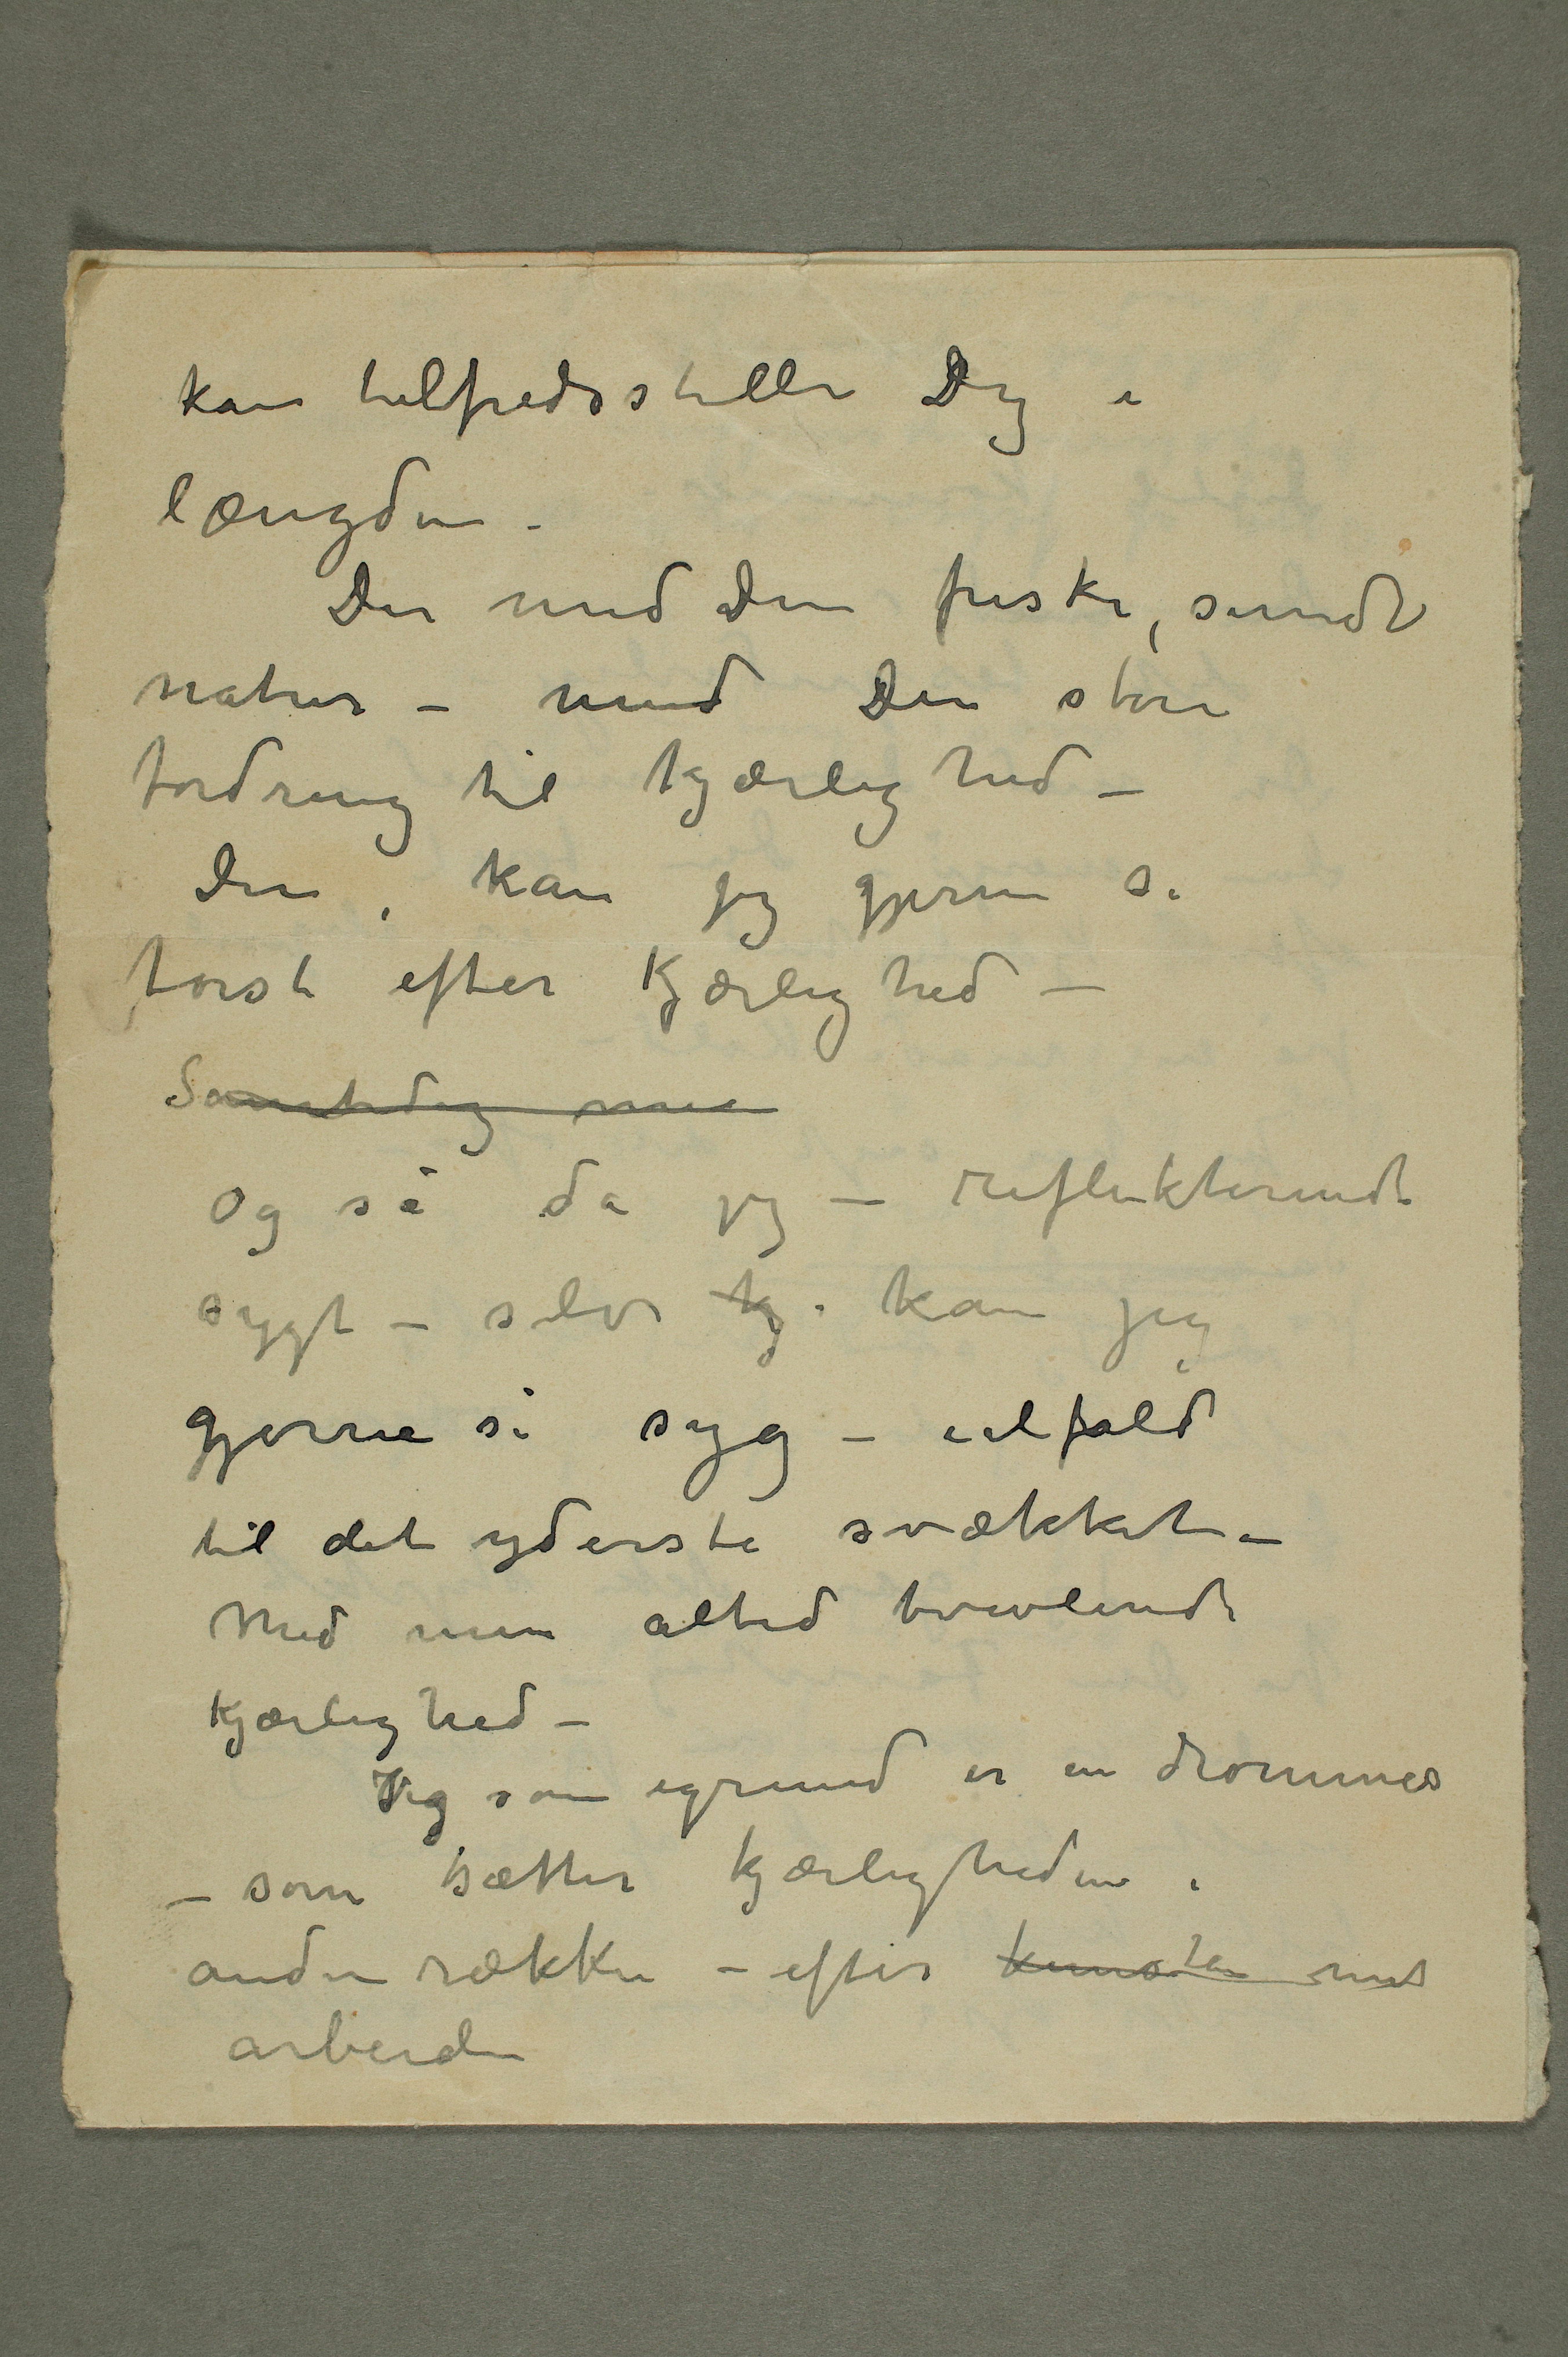 kan tilfredsstille Dig i
længden –
Du med din friske, sunde
natur – med din store
fordring til kjærlighed –
din, kan jeg gjerne si
tørst efter kjærlighed –
Samtidig min
Og så da jeg – reflekterende
sygt – selv kj. kan jeg
gjerne si syg – ialfald
til det yderste svækket –
Med min altid tvivlende
kjærlighed –
Jeg som igrund er en drømmer
– som sætter kjærligheden i
anden række – efter kunsten mit
arbeide